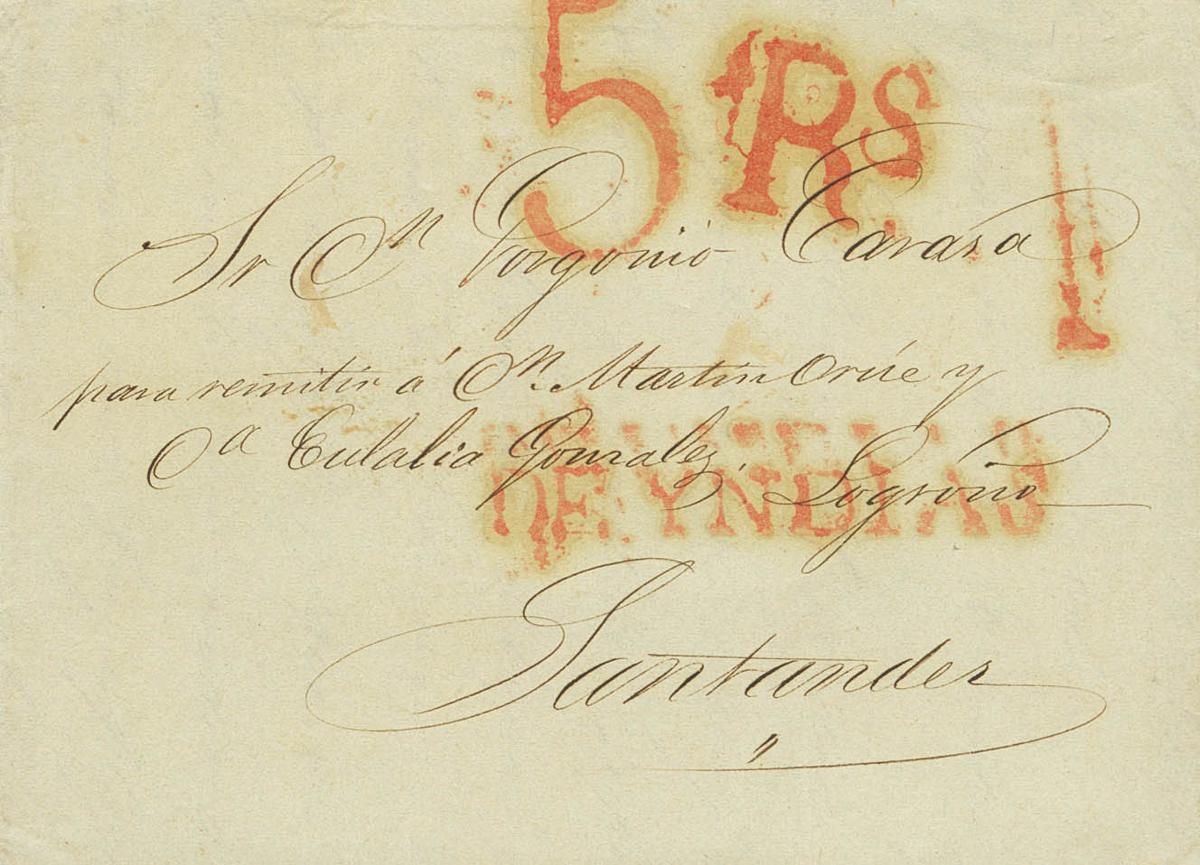 5 Rs
Sr Dn Gorgonio Carasa
para remitir á Dn. Martin Orúe y
Da Eulalia Gonzalez, Logroño
DE YNDIAS
Santander